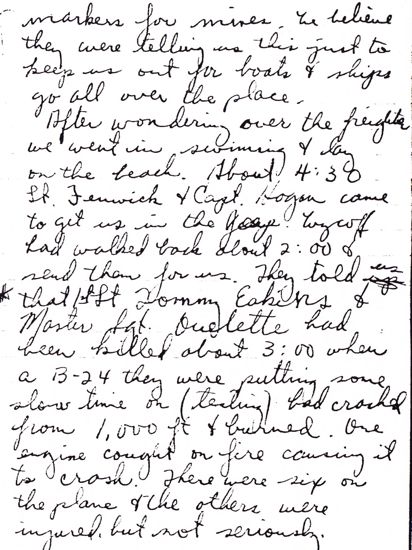 markers for mines. We believe
they were telling us this just to
keep us out for boats & ships
go all over the place.
After wondering over the freighter
we went in swimming & lay
on the beach. About 4:30
Lt. Fenwick & Capt. Hogan came
to get us in the Jeep. Wycoff
had walked back about 2:00 &
send them for us. They told us
* that 1st Lt Tommy Eakins &
Master Sgt. Ouelette had
been killed about 3:00 when
a B-24 they were putting some
slow time on (testing) had crashed
from 1,000 ft & burned. One
engine cought on fire causing it
to crash. There were six on
the plane & the others were
injured, but not seriously.